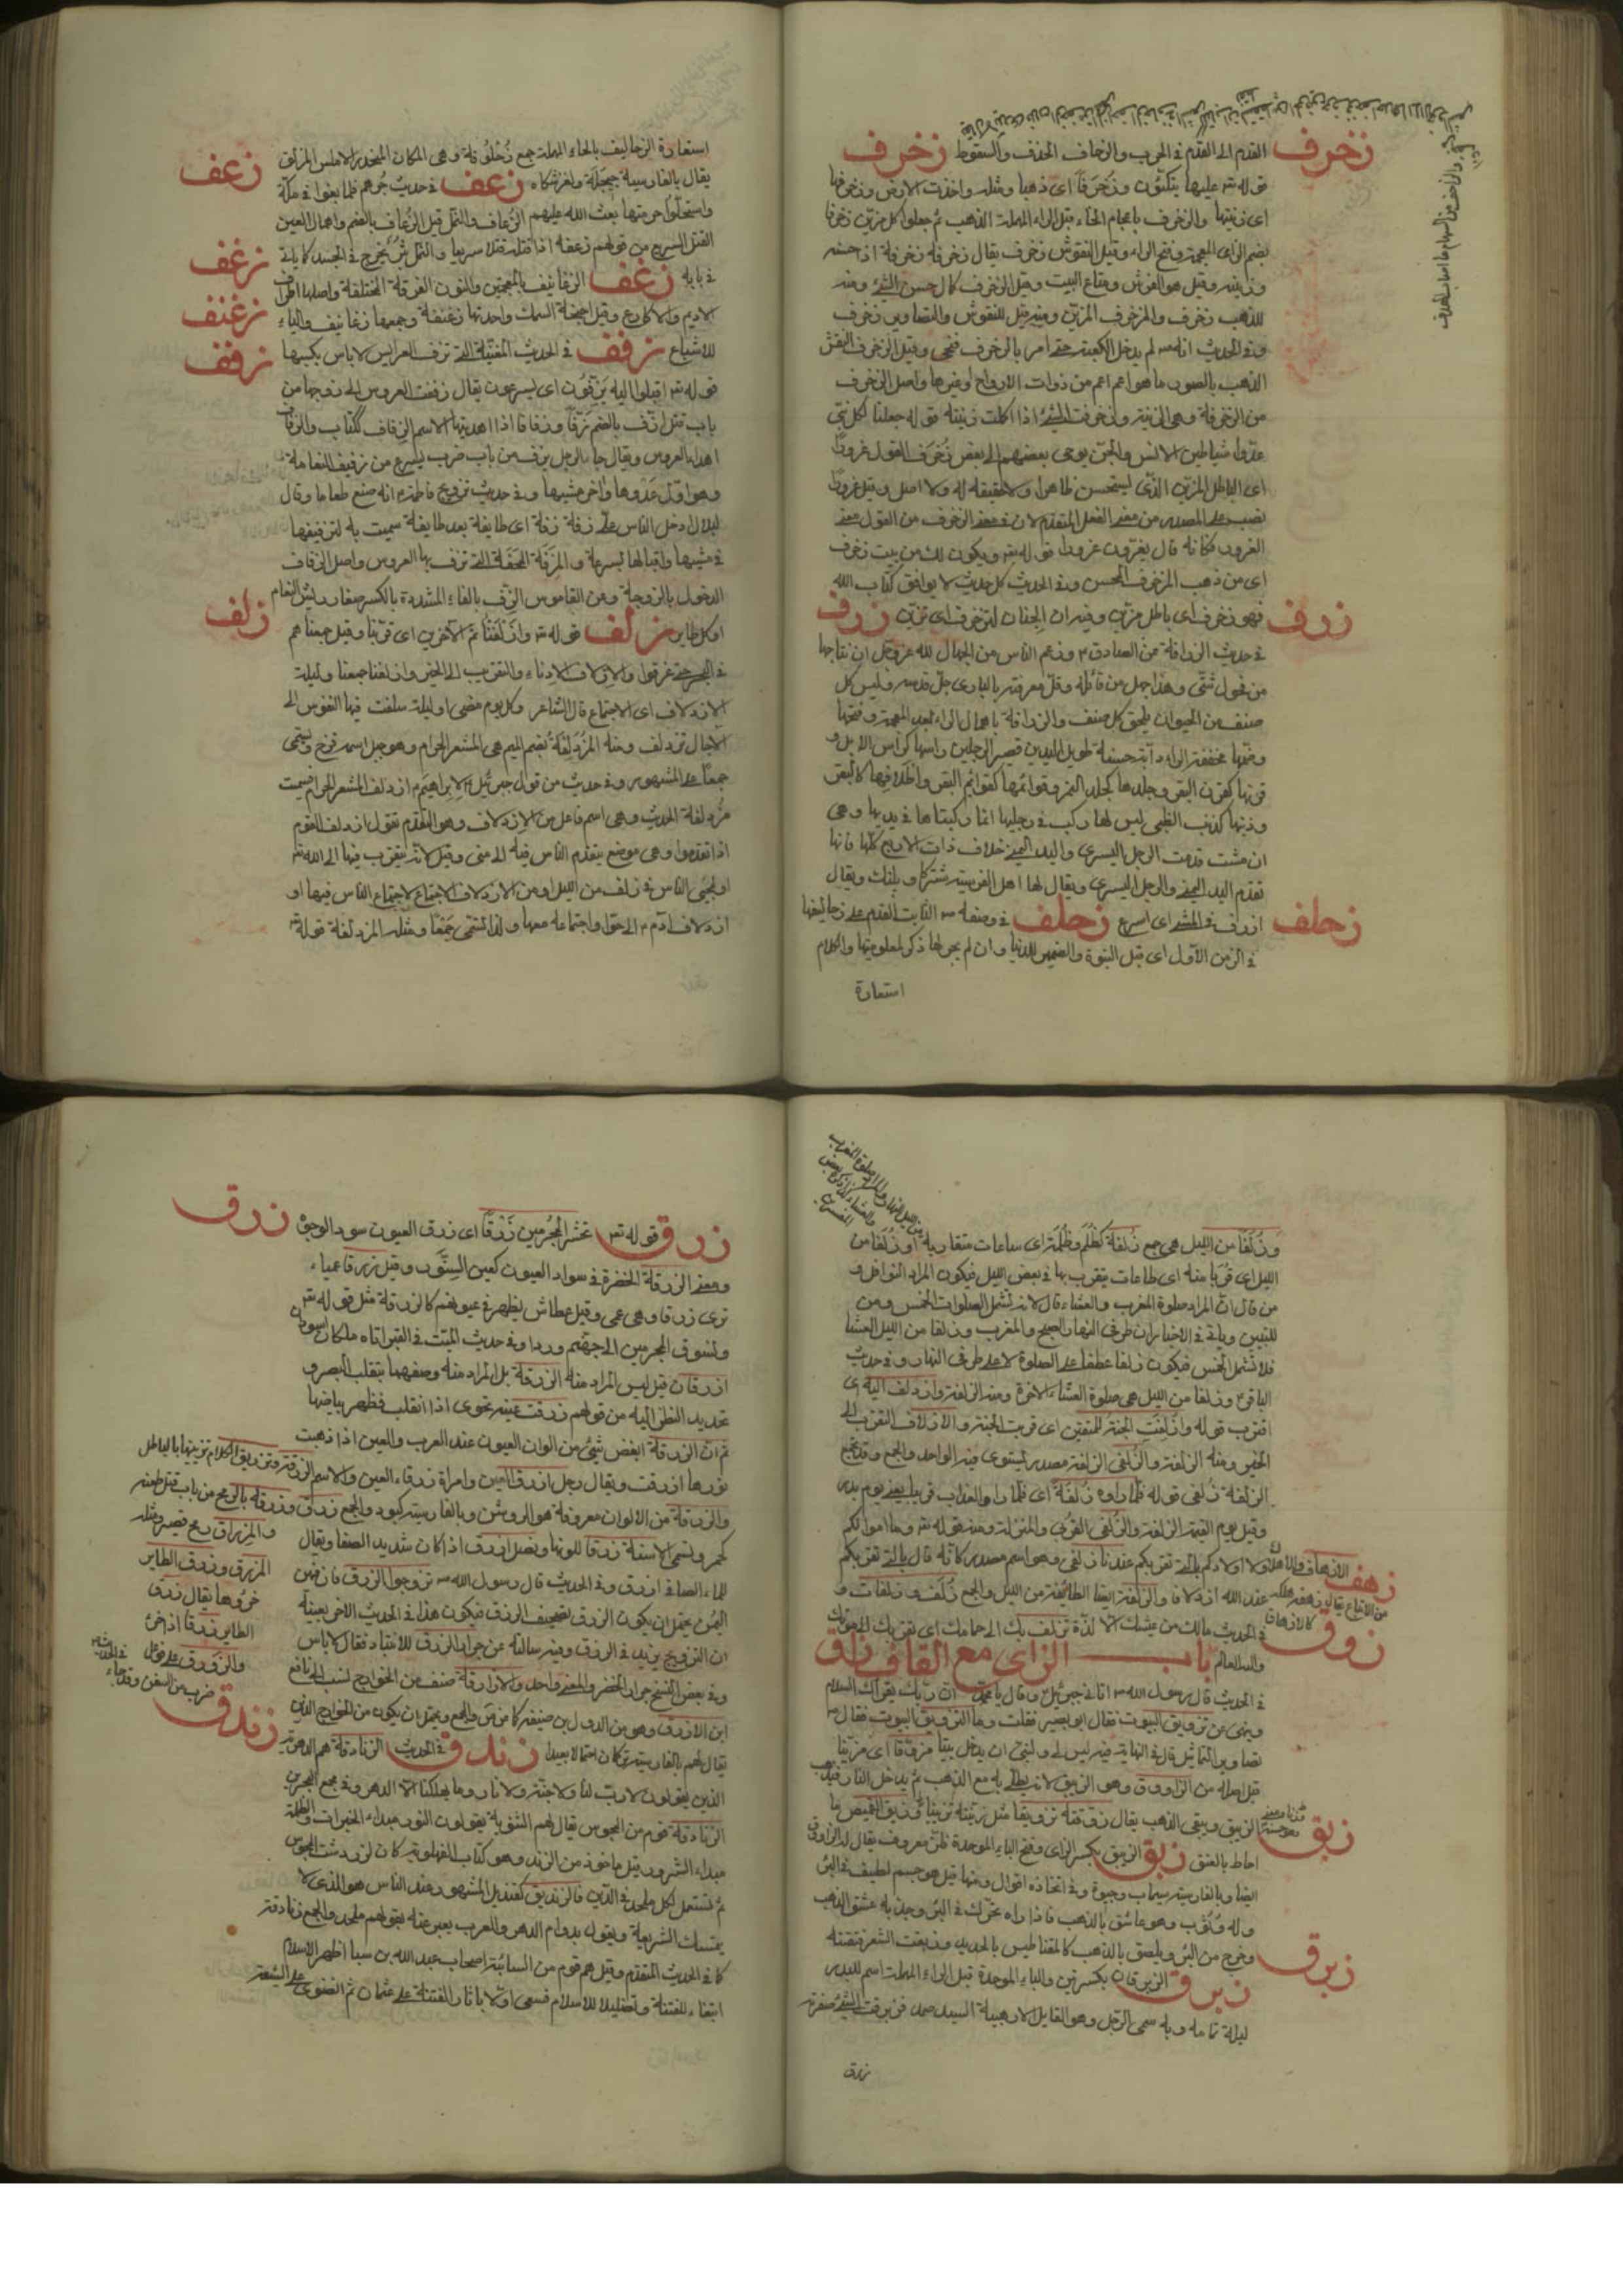 القدم الى القدم في الحرب والزحاف الحذف والسقوط زخرف
قوله تعالى عليها يتكئون وزخرفا اى ذهبا ومثله واخذت الارض وزخرفها
اى زينتها والزخرف باعجام الخاء قبل الراء المهملة الذهب ثم جعلوا كل مزين زخرفا
بضم الزاى المعجمة وفتح الراء وقيل النقوش زخرف يقال زخرفه زخرفة اذا حسنه
وزينه وقيل هو الفرش ومتاع البيت وقيل الزخرف كمال حسن الشئ ومنه
للذهب زخرف والمزخرف المزين ومنه قيل للنقوش والتصاوير زخرف
وفى الحديث انه لم يدخل الكعبة حتى امر بالزخرف فنحى وقيل الزخرف النقش
الذهب بالصور ما هو اعم من ذوات الارواح او غيرها واصل الزخرف
من الزخرفة وهى الزينة وزخرفت الشئ اذا اكملت زينته قوله جعلنا لكل نبى
عدوا شياطين الانس والجن يوحى بعضهم الى بعض زخرف القول غرورا
اى الباطل المزين الذى يستحسن ظاهرا ولا حقيقة له ولا اصل وقيل غرورا
نصب على المصدر من معنى الفعل المتقدم لان فى معنى الزخرف من القول معنى
الغرور فكانه قال يغرون غرورا قوله تع ويكون لك من بيت زخرف
اى من ذهب المزخرف المحسن وفى الحديث كل حديث لا يوافق كتاب الله
زرف
فهو زخرف اى باطل مزين وفيه ان الجنان لتزخرف اى تزين زرف
فى حديث الزرافة عن الصادق وزعم الناس من الجهال لله عز وجل ان نتاجها
من فحول شتى وهذا جهل من قائله وقلة معرفته بالبارى جل قدسه وليس كل
صنف من الحيوان يلحق كل صنف والزرافة باهمال الراء بعد المعجمة وفتحها
وضمها مخففة الراء دابة حسنة طويل اليدين قصير الرجلين راسها كراس الابل و
قرنها كقرن البقر وجلدها كجلد النمر وقوائمها كقوائم البقر واظلافها كالبقر
وذنبها كذنب الظبى ليس لها ركب فى رجليها انما ركبتاها فى يديها وهى
ان مشت قدمت الرجل اليسرى واليد اليمنى خلاف ذات الاربع كلها فانها
تقدم اليد اليمنى والرجل اليسرى ويقال لها اهل الفرسية شتركاو پلنك ويقال
زحلف
ازرف فى المشى اى اسرع زحلف فى وصفه الثابت القدم على زحاليفها
فى الزمن الاول اى قبل النبوة والضمير للدنيا وان لم يجر لها ذكر لمعلوميتها والكلام
استعارة
استعارة الزحاليف بالحاء المهملة جمع زحلوفة وهى المكان المنحدر الاملس المزلق
زعف
يقال بالفارسية زعف فى حديث جرهم فلما بغوا فى مكة
واستحلوا حرمتها بعث الله عليهم الزعاف والنمل قيل الزعاف بالضم واهمال العين
القتل السريع من قولهم زعفه اذا قتله قتلا سريعا والنمل بثر يخرج فى الجسد كما ياتى
زغف
فى بابه زغف الزغانيف بالمعجمتين والنون الفرقة المختلفة واصلها اطراف
زغنف
الاديم والاكارع وقيل اجنحة السمك واحدتها زغنفة وجمعها زغانيف والياء
زفف
للاشباع زفف فى الحديث المغنية التى تزف العرايس لا باس بكسبها
قوله تع اقبلوا اليه يزفون اى يسرعون يقال زففت العروس الى زوجها من
باب قتل ازف بالضم زفا وزفافا اذا اهديتها الاسم الزفاف ككتاب والزفاف
اهداء العروس ويقال جاء الرجل يزف من باب ضرب يسرع من زفيف النعامة
وهو اول عدوها واخر مشيها وفى حديث تزويج فاطمة انه صنع طعاما وقال
لبلال ادخل الناس على زفة زفة اى طايفة بعد طايفة سميت به لتزفيفها
فى مشيها واقبالها بسرعة والمزفة المحفة التى تزف بها العروس واصل الزفاف
الدخول بالزوجة وعن القاموس الزف بالفاء المشددة بالكسر صغار ريش النعام
زلف
او كل طاير زلف قوله تع وازلفنا ثم الآخرين اى قربنا وقيل جمعناهم
فى البحر حتى غرقوا والازلاف الادناء والتقريب الى الخير وازلفنا جمعنا وليلة
الازدلاف اى الاجتماع قال الشاعر وكل يوم مضى او ليلة سلفت فيها النفوس الى
الآجال تزدلف ومنه المزدلفة بضم الميم هى المشعر الحرام وهو جبل اسمه قزح وتسمى
جمعا على المشهور وفى حديث من قول جبرئيل لابراهيم ازدلف المشعر الحرام فسميت
مزدلفة الحديث وهى اسم فاعل من الازدلاف وهو التقدم تقول ازدلف القوم
اذا تقدموا وهى موضع يتقدم الناس فيه الى منى وقيل لانه يتقرب فيها الى الله تع
او لمجئ الناس فى زلف من الليل او من الازدلاف الاجتماع لاجتماع الناس فيها او
ازدلاف آدم الى حوا واجتماعه معها ولذا تسمى جمعا ومثله المزدلفة قوله تع
وزلفا من الليل هى جمع زلفة كظلم وظلمة اى ساعات متقاربة او زلفا من
الليل اى قربا منه اى طاعات يتقرب بها فى بعض الليل فيكون المراد النوافل و
من قال ان المراد صلوة المغرب والعشاء قال لانه يشمل الصلوات الخمس ومن
للتبيين وياتى فى الاخبار ان طرفى النهار الصبح والمغرب وزلفا من الليل العشا
فلا تشمل الخمس فيكون زلفا عطفا على الصلوة لا على طرفى النهار وفى حديث
الباقر وزلفا من الليل هى صلوة العشاء الاخرة ومنه الزلفة وازدلف اليه اى
اقترب قوله وازلفت الجنة للمتقين اى قربت الجنة والازلاف التقرب الى
الخير ومنه الزلفة والزلفى الزلفة مصدر يستوى فيه الواحد والجمع وقد تجمع
الزلفة زلفى قوله فلما راوه زلفة اى فلما راو العذاب قريبا يعنى يوم بدر
وقيل يوم القيمة الزلفة والزلفى القربى والمنزلة ومنه قوله تع وما اموالكم
ولا اولادكم بالتى تقربكم عندنا زلفى وهو اسم مصدر كانه قال بالتى تقربكم
زهف
عند الله ازدلافا والزلفة ايضا الطائفة من الليل والجمع زلف وزلفات و
فى الحديث مالك من عيشك الا لذة تزدلف بك الى حمامك اى تقربك الى موتك
زوق
والله العالم باب الزاى مع القاف زوق
فى الحديث قال رسول الله اتانى جبرئيل وقال يا محمد ان ربك يقرأك السلام
وينهى عن تزويق البيوت فقال ابو بصير فقلت وما التزويق البيوت فقال
تصاوير التماثيل قال فى النهاية فيه ليس لى ولنبى ان يدخل بيتا مزوقا اى مزينا
قيل اصله من الزاووق وهو الزيبق لانه يطلى به مع الذهب ثم يدخل النار فيذهب
الزيبق ويبقى الذهب يقال زوقته تزويقا مثل زينته تزيينا وزيق القميص ما
زبق
احاط بالعنق زبق الزيبق بكسر الزاى وفتح الباء الموحدة فلز معروف يقال له الزاووق
ايضا وبالفارسية سيماب وجيوة وفى اتخاذه اقوال ومنها قيل هو جسم لطيف فى البئر
وله وهو عاشق بالذهب فاذا راه تحرك فى البئر وجذبه عشق الذهب
وخرج من البئر ويلصق بالذهب كالمقناطيس بالحديد وزبقت الشعر نتفته
زبرق
زبرق الزبرقان بكسرتين والباء الموحدة قبل الراء المهملة اسم للبدر
ليلة تمامه وبه سمى الرجل وهو القايل السيد صمد زبرقت الشئ صفرته
زرق
زرق
زرق قوله تع نحشر المجرمين زرقا اى زرق العيون سود الوجوه
ومعنى الزرقة الخضرة فى سواد العيون كعين السنور وقيل زرقا عمياء
ترى زرقا وهى عمى وقيل عطاش يظهر فى عيونهم كالزرقة مثل قوله تع
ونسوق المجرمين الى جهنم وردا وفى حديث الميت فى القبر اتاه ملكان اسودان
ازرقان قيل ليس المراد منه الزرقة بل المراد منه وصفهما بتقلب البصر و
تحديد النظر اليه من قولهم زرقت عينه نحوى اذا انقلب فظهر بياضها
ثم ان الزرقة ابغض شئ من الوان العيون عند العرب والعين اذا ذهبت
نورها ازرقت ويقال رجل ازرق العين وامراة زرقاء العين والاسم الزرقة وتزويق الكلام تزيينها بالباطل
والزرقة من الالوان معروفة هو الروشن وبالفارسية كبود والجمع زرق وزرقه بالرمح من باب قتل طعنه
كحمر وتسمى الاسنة زرقا للونها ونصل ازرق اذا كان شديد الصفا ويقال
للماء الصافى ازرق وفى الحديث قال رسول الله تزوجوا الزرق فان فيهن
اليمن يحتمل ان يكون الزرق تصحيف الرزق فيكون هذا فى الحديث الاخر بعينه
ان التزويج يزيد فى الرزق وفيه سالته عن جرار الزرق للانتباذ فقال لا باس
وفى بعض النسخ جرار الخضر والمعنى واحد والازارقة صنف من الخوارج نسب الى نافع
ابن الازرق وهو من الدول بن حنيفة
زندق
يقال لهم بالفارسية زندق فى الحديث الزنادقة هم الدهرية
الذين يقولون لا رب لنا ولا جنة ولا نار وما يهلكنا الا الدهر وفى مجمع البحرين
الزنادقة قوم من المجوس يقال لهم الثنوية يقولون النور مبداء الخيرات والظلمة
مبداء الشرور قيل ماخوذ من الزند وهو كتاب الفهلوية كان لزردشت المجوس
ثم تستعمل لكل ملحد فى الدين فالزنديق كقنديل المشهور عند الناس هو الذى لا
يتمسك الشريعة ويقول بدوام الدهر والعرب يعبر عنه بقولهم ملحد والجمع زنادقة
كما فى الحديث المتقدم وقيل هم قوم من السبائية اصحاب عبد الله بن سبا اظهر الاسلام
ابتغاء للفتنة وتضليلا للاسلام فسعى اولا باثارة الفتنة على عثمان ثم انضوى على الشيعة
والمزراق رمح قصير ومثله
المزرق وزرق الطاير
خرؤها يقال زرق
الطاير زرقا اذا خرئ